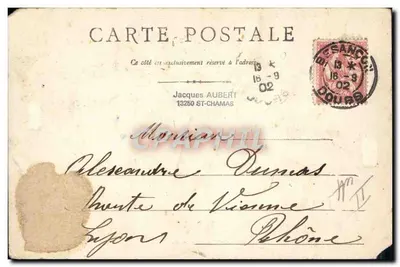 CARTE POSTALE
Ce côté est exclusivement réservé à l'adresse
13 *
16 - 9
02
DOUBS
BESANCON
13 *
16 - 9
02
DOUBS
Jacques AUBERT
13250 ST-CHAMAS
Monsieur
Alexandre Dumas
Route de Vienne
Lyon Rhône